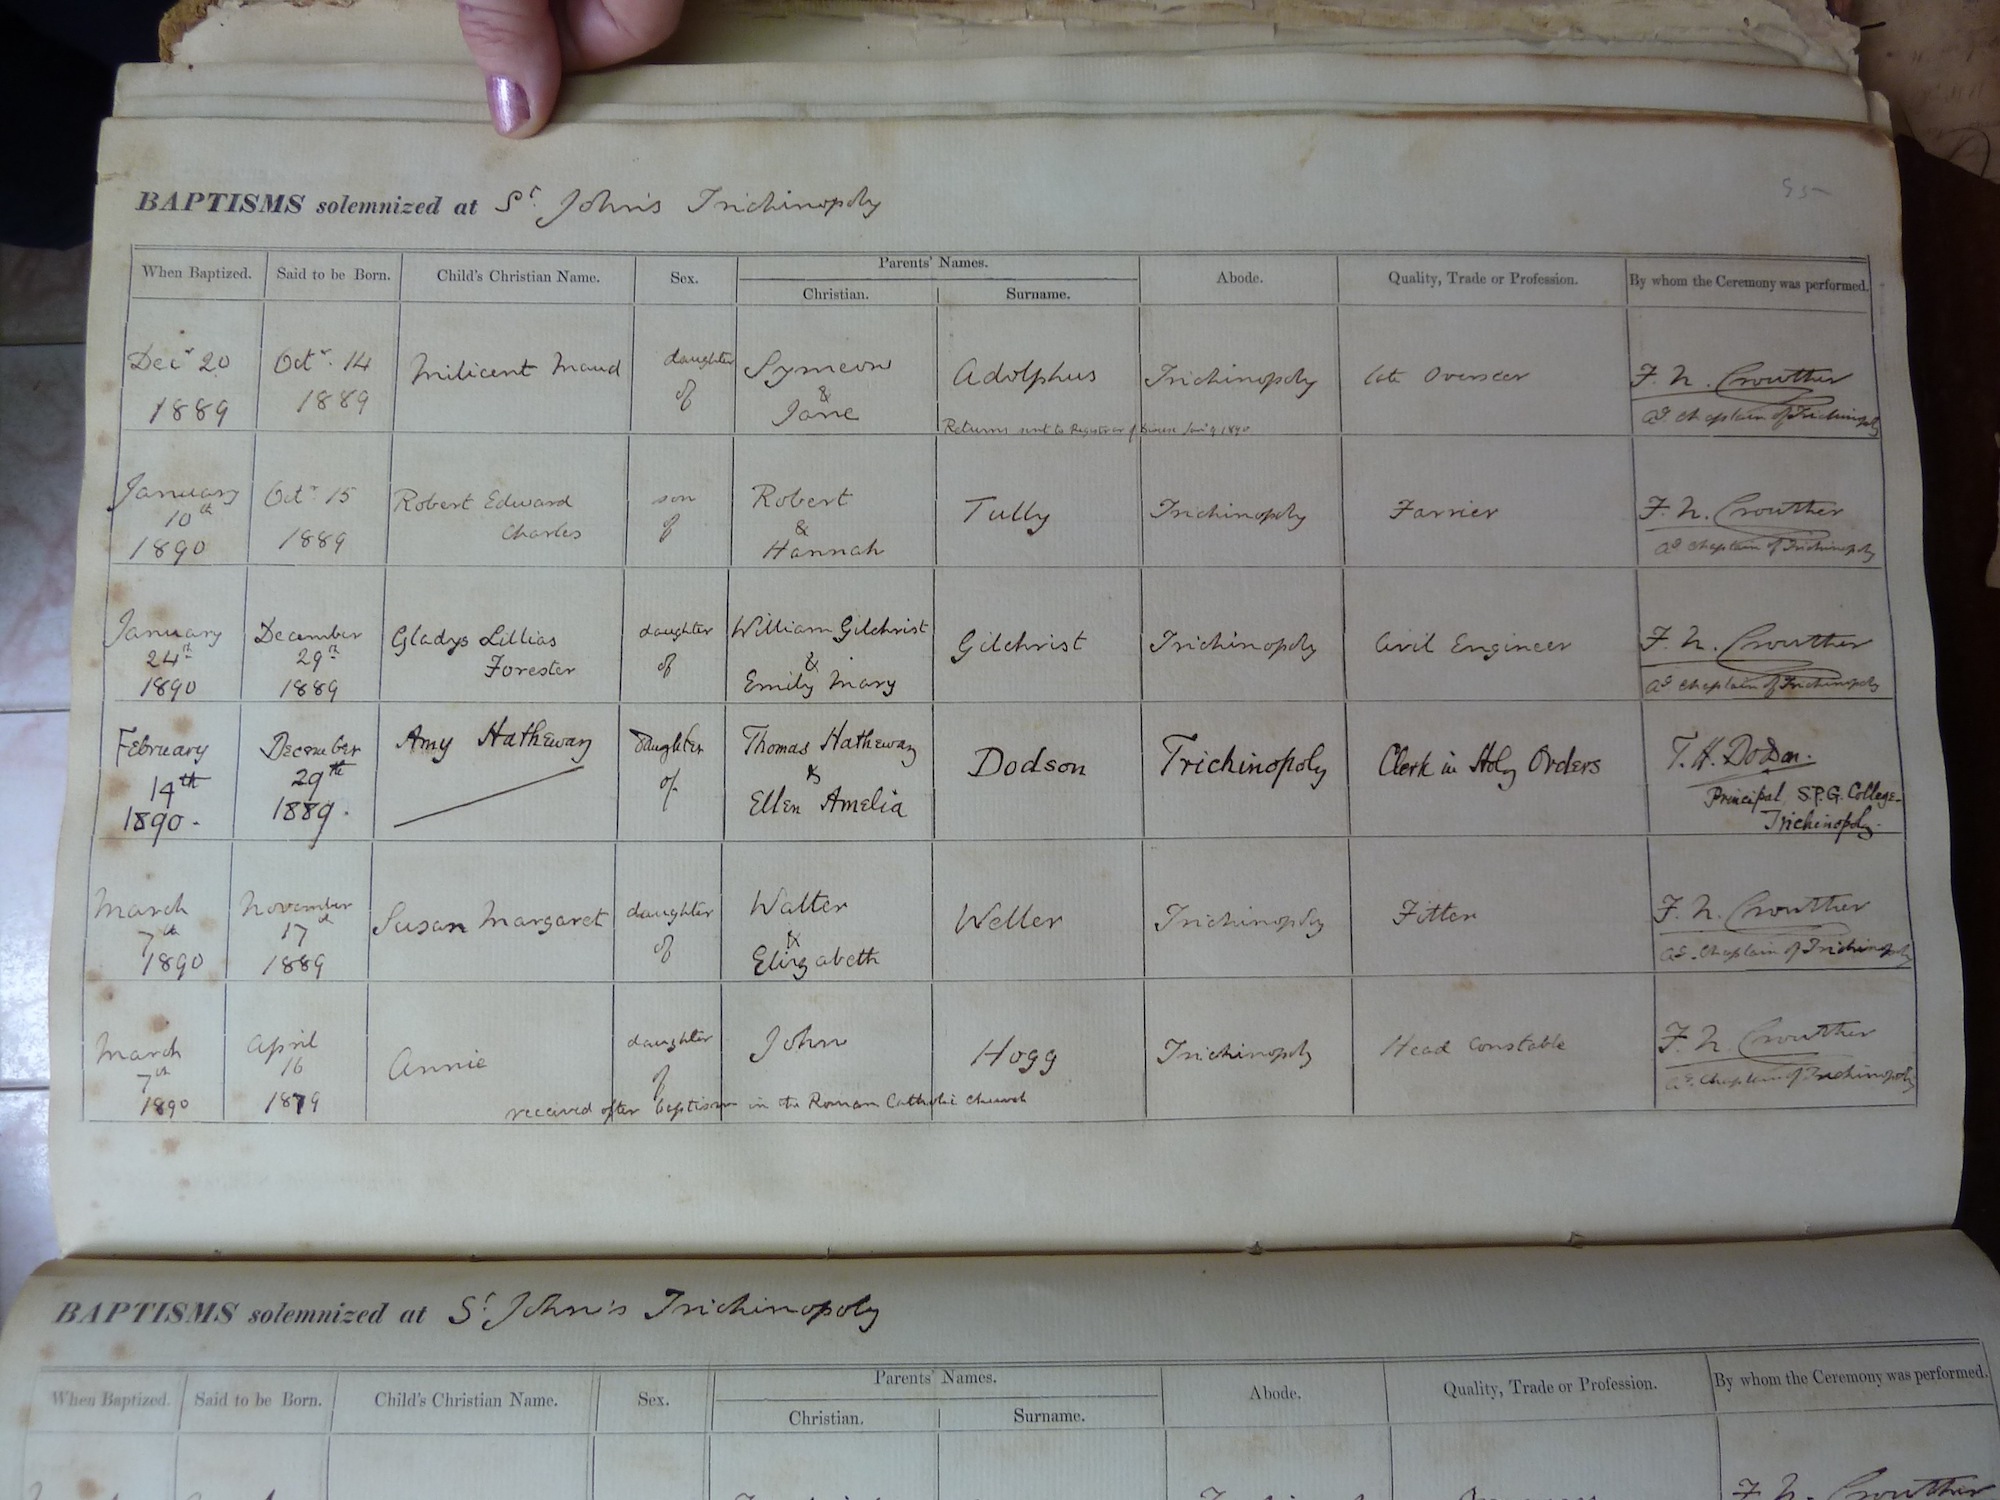 BAPTISMS solemnized at St. John's Trichinopoly
When Baptized. Said to be Born. Child's Christian Name. Sex. Parents' Names. Abode. Quality, Trade or Profession. By whom the Ceremony was performed.
Christian. Surname.
Decr 20 1889
Octr. 14 1889
Milicent Maud
daughter of
Symeon & Jane
Adolphus
Trichinopoly
late Overseer
F. N. Crowther
Ag Chaplain of Trichinopoly
Returns sent to Registrar of Diocese Jany 9 1890
January 10th 1890
Octr 15 1889
Robert Edward Charles
son of
Robert & Hannah
Tully
Trichinopoly
Farrier
F. N. Crowther
Ag Chaplain of Trichinopoly
January 24th 1890
December 29th 1889
Gladys Lillias Forester
daughter of
William Gilchrist & Emily Mary
Gilchrist
Trichinopoly
Civil Engineer
F. N. Crowther
Ag Chaplain of Trichinopoly
February 14th 1890.
December 29th 1889.
Amy Hatheway
daughter of
Thomas Hatheway & Ellen Amelia
Dodson
Trichinopoly
Clerk in Holy Orders
T. H. Dodson.
Principal, S.P.G. College
Trichinopoly.
March 7th 1890
November 17th 1889
Susan Margaret
daughter of
Walter & Elizabeth
Weller
Trichinopoly
Fitter
F. N. Crowther
Ag. Chaplain of Trichinopoly
March 7th 1890
April 16 1879
Annie
daughter of
John
Hogg
Trichinopoly
Head Constable
F. N. Crowther
Ag. Chaplain of Trichinopoly
received after baptism in the Roman Catholic Church
BAPTISMS solemnized at St. John's Trichinopoly
When Baptized. Said to be Born. Child's Christian Name. Sex. Parents' Names. Abode. Quality, Trade or Profession. By whom the Ceremony was performed.
Christian. Surname.
F. N. Crowther